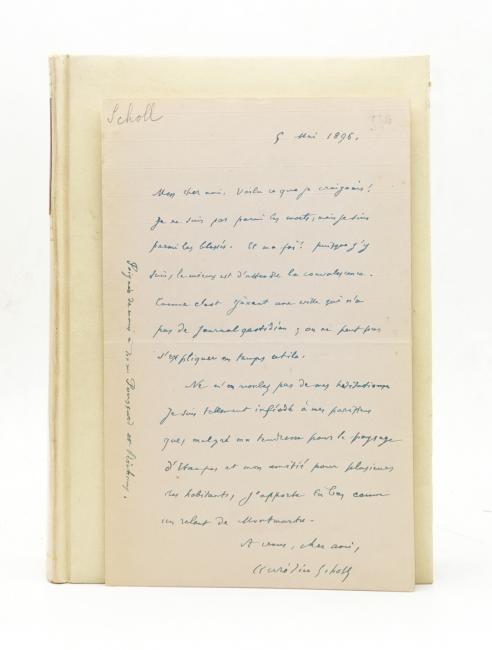 Scholl
5 Mai 1896.
Mon cher ami. Voilà ce que je craignais!
Je ne suis pas parmi les morts, mais je suis
parmi les blessés. Et ma foi! puisque j'y
suis, le mieux est d'attendre la convalescence.
Comme c'est gênant une ville qui n'a
pas de journal quotidien; on ne peut pas
s'expliquer en temps utile.
Ne m'en voulez pas de mes hésitations
Je suis tellement inféodé à mes
que, malgré ma tendresse pour le paysage
d'Etampes et mon amitié pour plusieurs
ses habitants, j'apporte là bas comme
un relent de Montmartre.
A vous, cher ami,
Aurélien Scholl
Poignée de mains à